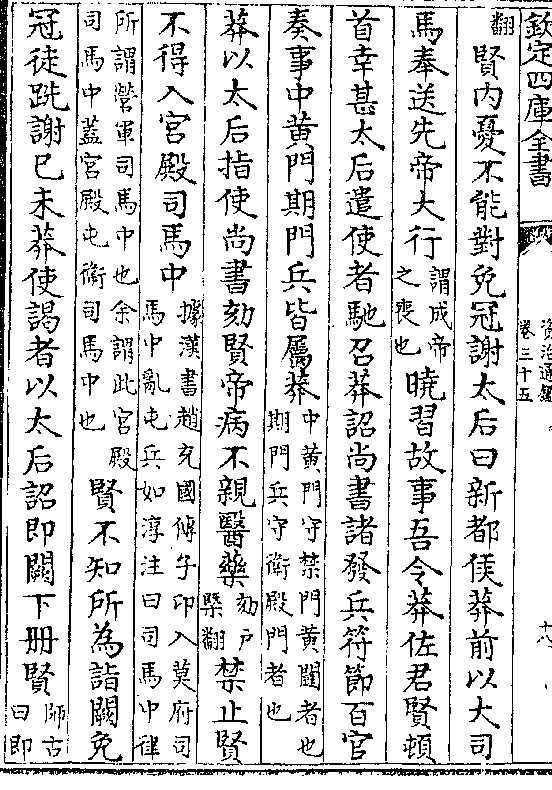 欽定四庫全書
資治通鑑
卷三十五
十八
翻賢内憂不能對免冠謝太后曰新都侯莽前以大司
馬奉送先帝大行謂成帝之喪也曉習故事吾令莽佐君賢頓
首幸甚太后遣使者馳召莽詔尚書諸發兵符節百官
奏事中黄門期門兵皆屬莽中黄門守禁門黄闥者也期門兵守衛殿門者也
莽以太后指使尚書劾賢帝病不親醫藥劾戸槩翻禁止賢
不得入宮殿司馬中據漢書趙充國傳子卬入莫府司馬中亂屯兵如淳注曰司馬中律
所謂營軍司馬中也余謂此宮殿司馬中蓋宮殿屯衛司馬中也賢不知所為詣闕免
冠徒跣謝已未莽使謁者以太后詔即闕下冊賢師古曰即